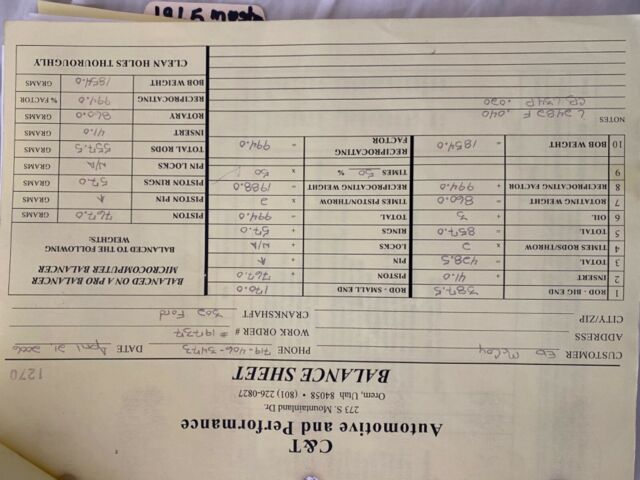 C&T
Automotive and Performance
273 S. Mountainland Dr.
Orem, Utah 84058 • (801) 226-0827
BALANCE SHEET
1270
CUSTOMER Ed McCoy PHONE 719-406-3473 DATE April 21, 2006
ADDRESS WORK ORDER # 197737
CITY/ZIP CRANKSHAFT 302 Ford
1 ROD - BIG END 387.5 ROD - SMALL END 170.0
2 INSERT + 41.0 PISTON + 767.0
3 TOTAL = 428.5 PIN +
4 TIMES RODS/THROW x 2 LOCKS + N/A
5 TOTAL = 857.0 RINGS + 57.0
6 OIL + 3 TOTAL = 994.0
7 ROTATING WEIGHT = 860.0 TIMES PISTON/THROW x 2
8 RECIPROCATING FACTOR + 994.0 RECIPROCATING WEIGHT = 1988.0
9 TIMES 50 % x 50
10 BOB WEIGHT = 1854.0 RECIPROCATING FACTOR = 994.0
BALANCED ON A PRO BALANCER
MICROCOMPUTER BALANCER
BALANCED TO THE FOLLOWING
WEIGHTS:
PISTON 767.0 GRAMS
PISTON PIN GRAMS
PISTON RINGS 57.0 GRAMS
PIN LOCKS N/A GRAMS
TOTAL RODS 557.5 GRAMS
INSERT 41.0 GRAMS
ROTARY 860.0 GRAMS
RECIPROCATING 994.0 % FACTOR
BOB WEIGHT 1854.0 GRAMS
CLEAN HOLES THOUROUGHLY
NOTES L2482F .040
.020